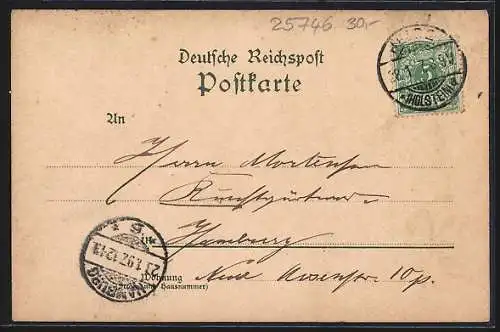 25746 30,-
Deutsche Reichspost
Postkarte
An
Herrn Mortensen
Kunstgärtner
in Hamburg
Wohnung Neue Rosenstr. 10 p.
(Straße und Hausnummer)
(HOLSTEIN)
5
HAMBURG
1.97.12-1